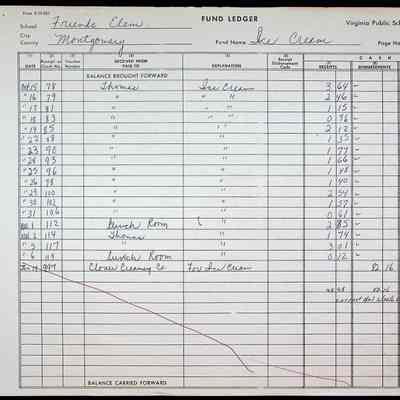 School Friends Elem.
FUND LEDGER
Virginia Public Sc
City
County Montgomery
Fund Name Ice Cream
Page No
CASH
DATE Receipt or Check No. Voucher Number RECEIVED FROM PAID TO EXPLANATIONS Receipt Disbursement Code RECEIPTS DISBURSEMENTS
BALANCE BROUGHT FORWARD
Oct 15 78 Thomas Ice Cream 3 64
" 16 79 " " " 2 46
" 17 81 " " " 1 15
" 18 83 " " 0 96
" 19 85 " " 2 12
" 22 88 " " 1 35
" 23 92 " " 1 77
" 24 93 " " 1 66
" 25 96 " " 1 48
" 26 98 " " 1 40
" 29 100 " " 2 54
" 30 102 " " 1 57
" 31 106 " " 0 61
Nov. 1 112 Lunch Room " 2 85
Nov. 2 114 Thomas " 1 74
" 5 117 " " 3 01
" 6 119 Lunch Room " 0 12
Clover Creamery Co For Ice Cream 82 16
BALANCE CARRIED FORWARD